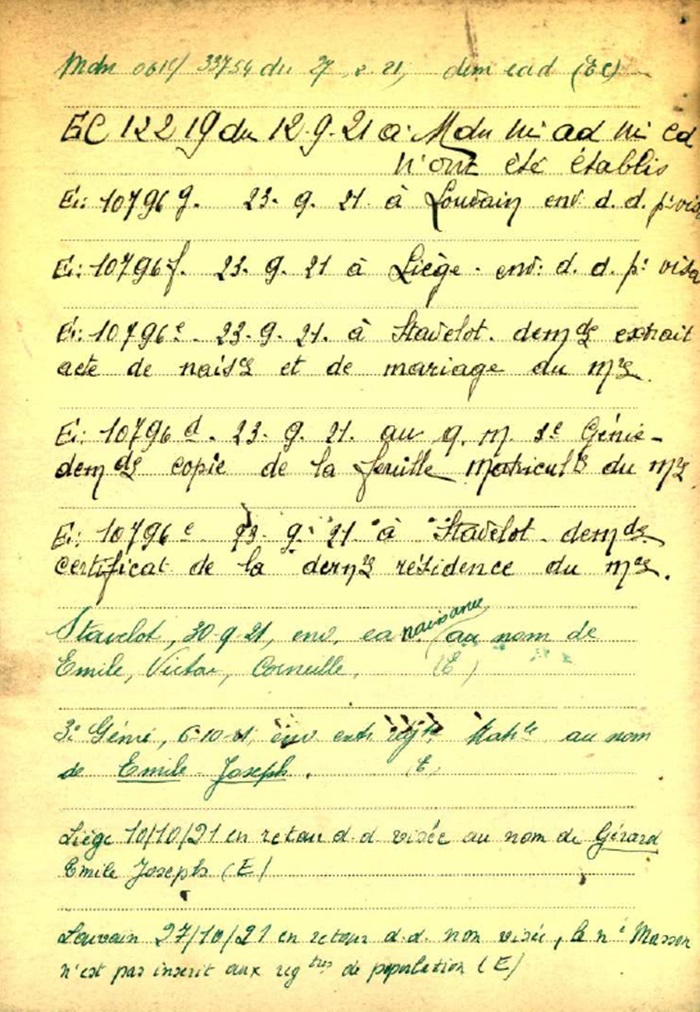 Mdn 33754 du 27 . 2. 21, dem ead (EC)
EC 12219 du 12.9.21 à Mdn ni ad ni ed
n'ont été établis
Ei: 10796 g. 23. 9. 21 à Louvain env. d. d. pr visa
Ei: 10796 f. 23. 9. 21 à Liège. env: d. d. pr visa
Ei: 10796 e. 23.9.21. à Stavelot. demde extrait
acte de naisce et de mariage du
Ei: 10796 d. 23. 9. 21. au q. m. 3e Génie -
demde copie de la feuille matricule du
Ei: 10796 c 23. 9. 21 à Stavelot. demde
certificat de la derre résidence du
Stavelot, 30.9.21, env. ea naissance au nom de
Emile, Victor, Corneille. (E)
3e Génie, 6-10-21, env extr regtre Matle au nom
de Emile Joseph. (E)
Liège 10/10/21 en retour d.d visée au nom de Gérard
Emile Joseph (E)
Louvain 27/10/21 en retour d.d. non visée, le né Masson
n'est pas inscrit aux regtres de population (E)